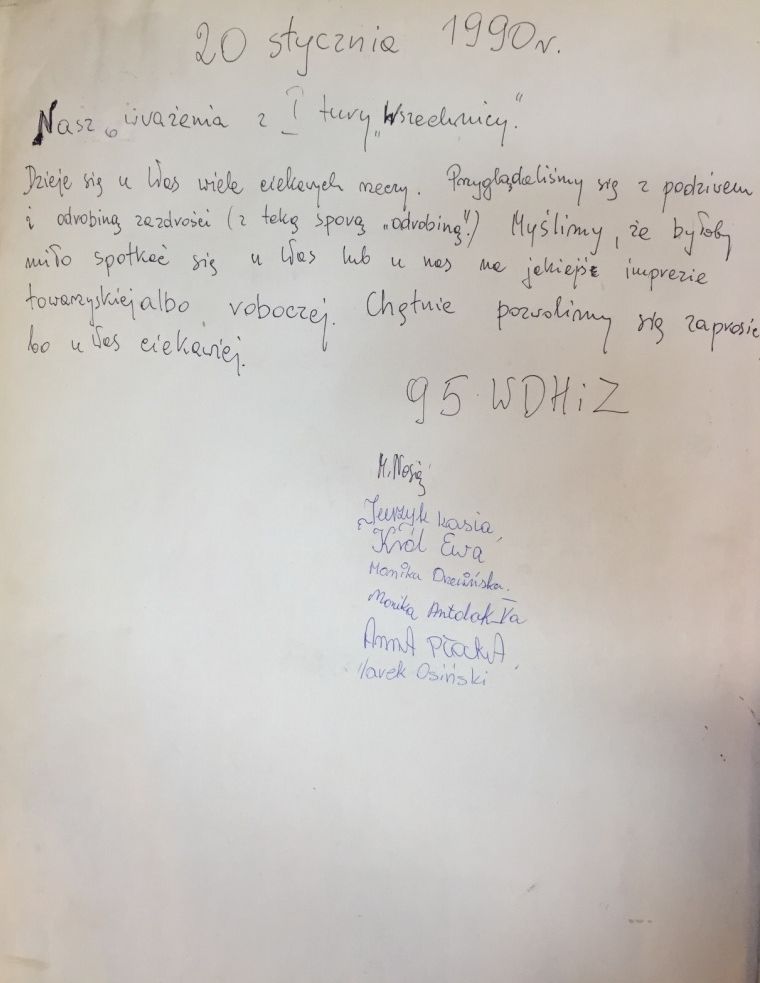 20 stycznia 1990r.
Nasze wrażenia z I tury „Wszechnicy".
Dzieje się u Was wiele ciekawych rzeczy. Przyglądaliśmy się z podziwem
i odrobiną zazdrości (z taką sporą „odrobiną"!) Myślimy, że byłoby
miło spotkać się u Was lub u nas na jakiejś imprezie
towarzyskiej albo roboczej. Chętnie pozwolimy się zaprosić
bo u Was ciekawiej.
95 WDHiZ
Jurzyk Kasia
Król Ewa
Monika
Monika Antolak Va
Anna Płacka
Marek Osiński